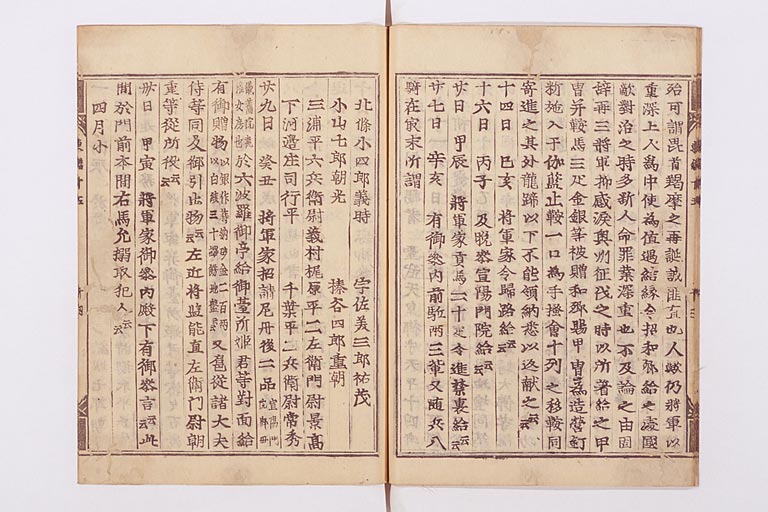 殆可謂毘首羯摩之再誕誠匪直也人歟仍將軍以
重源上人為中使為值遇結縁令招和卿給之處國
敵對治之時多斷人命罪業深重也不及論之由固
辭再三將軍抑感涙奧州征伐之時以所著給之甲
冑并鞍馬三疋金銀等被贈和卿賜甲冑為造營釘
新施入于伽藍止鞍一口為手掻會十列之移鞍同
寄進之其外龍蹄以下不能領納悉以返献之云云
十四日 己亥 將軍家令歸路給云云
十六日 丙子 及晩參宣陽門院給云云
廿日 甲辰 將軍家貢馬二十疋令進禁裏給云云
廿七日 辛亥 有御參內前駈兩三輩又随兵八
騎在家末所謂
北條小四郎義時 宇佐美三郎祐茂
小山七郎朝光 榛谷四郎重朝
三浦平六兵衛尉義村 梶原平二左衛門尉景高
下河邊庄司行平 千葉平二兵衛尉常秀
廿九日 癸丑 將軍家招請尼丹後二品
於六波羅御亭給御臺所姫君等對面給
有御贈物 以白綾三十端餝地盤云云 又舊從諸大夫
侍等同及御引出物云云左近將監能直左衛門尉朝
重等從所役云云
卅日 甲寅 將軍家御參內殿下有御參言云云此
間於門前本間右馬允搦取犯人云云
四月小
東鑑十五